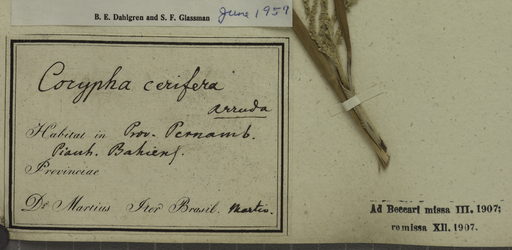 B. E. Dahlgren and S. F. Glassman June 1959
Corypha cerifera
Arruda
Habitat in Prov. Pernamb.
Piauh. Bahiens.
Provinciae
Dr Martius Iter Brasil. Martius.
Ad Beccari missa III. 1907;
remissa XII. 1907.